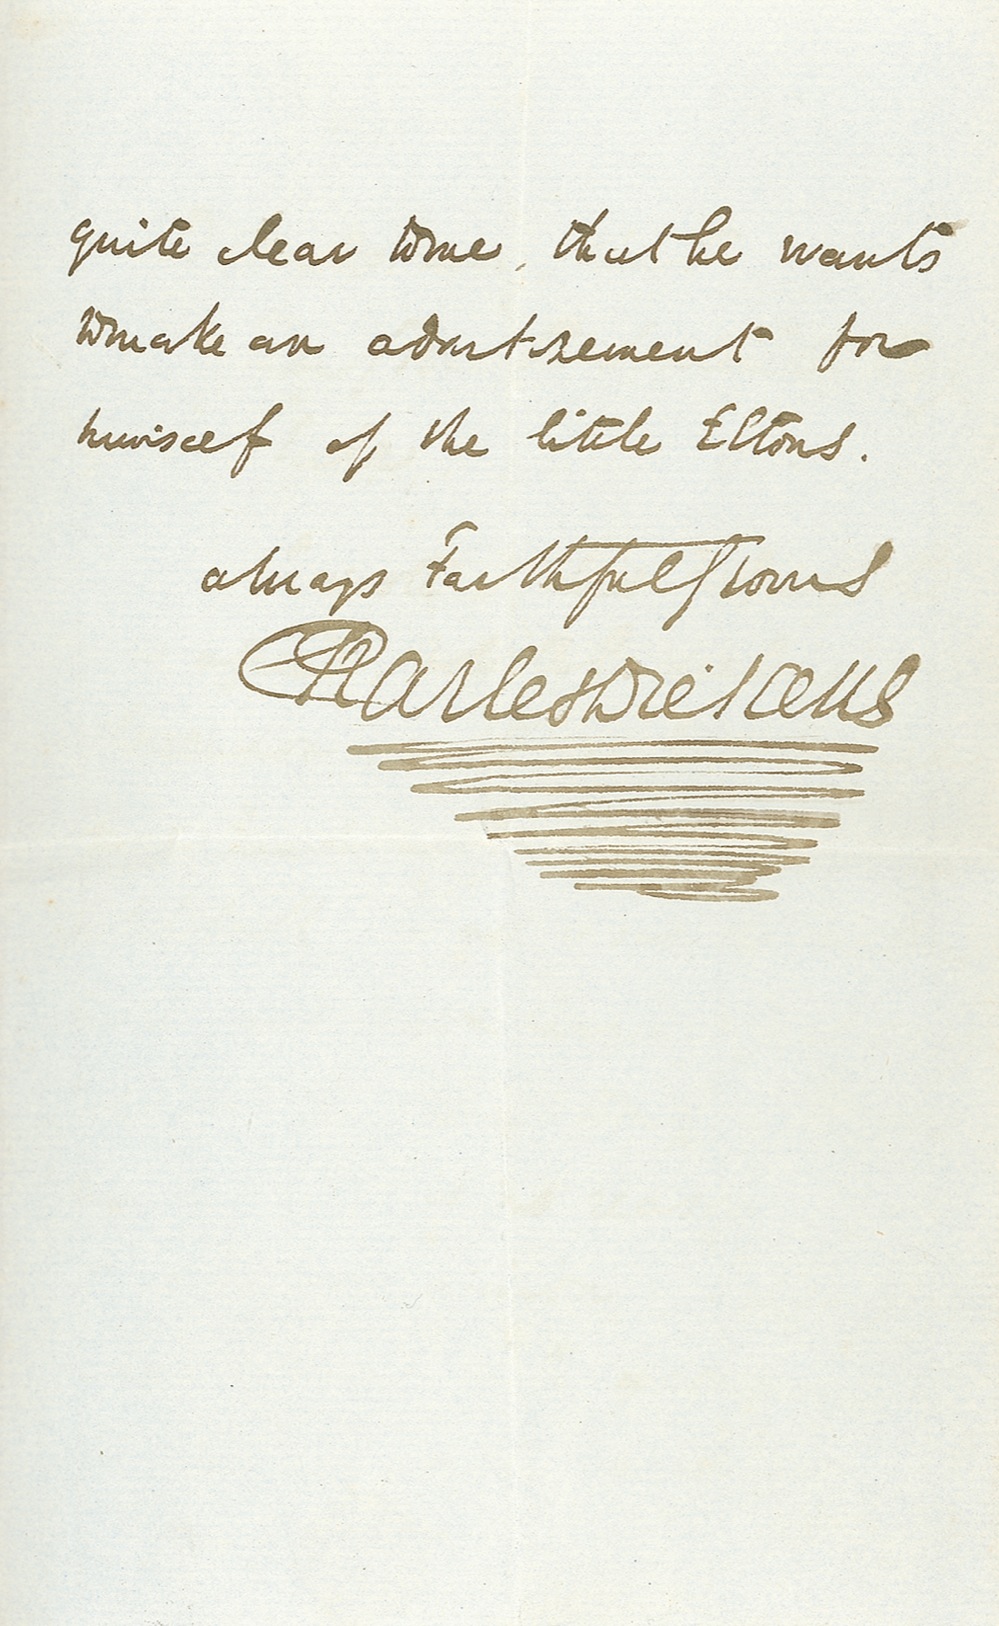 quite clear to me, that he wants
to make an advertisement for
himself of the little Eltons.
always Faithfully Yours
Charles Dickens